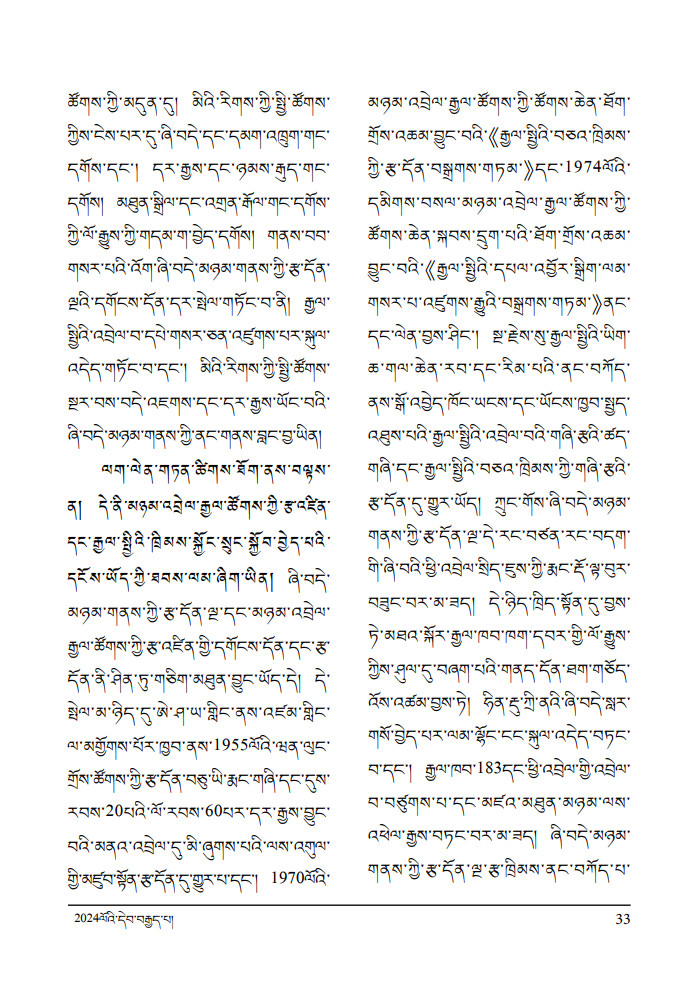 ཚོགས་ཀྱི་མདུན་དུ། མིའི་རིགས་ཀྱི་སྤྱི་ཚོགས་
ཀྱིས་ངེས་པར་དུ་ཞི་བདེ་དང་དམག་འཁྲུག་གང་
དགོས་དང་། དར་རྒྱས་དང་ཉམས་རྒུད་གང་
དགོས། མཐུན་སྒྲིལ་དང་འགྲན་རྒོལ་གང་དགོས་
ཀྱི་ལོ་རྒྱུས་ཀྱི་གདམ་ག་བྱེད་དགོས། གནས་བབ་
གསར་པའི་འོག་ཞི་བདེ་མཉམ་གནས་ཀྱི་རྩ་དོན་
ལྔའི་དགོངས་དོན་དར་སྤེལ་གཏོང་བ་ནི། རྒྱལ་
སྤྱིའི་འབྲེལ་བ་དཔེ་གསར་ཅན་འཛུགས་པར་སྐུལ་
འདེད་གཏོང་བ་དང་། མིའི་རིགས་ཀྱི་སྤྱི་ཚོགས་
སྔར་བས་བདེ་འཇགས་དང་དར་རྒྱས་ཡོང་བའི་
ཞི་བདེ་མཉམ་གནས་ཀྱི་ནང་གནས་བླང་བྱ་ཡིན།
ལག་ལེན་གཏན་ཚིགས་ཐོག་ནས་བལྟས་
ན། དེ་ནི་མཉམ་འབྲེལ་རྒྱལ་ཚོགས་ཀྱི་རྩ་འཛིན་
དང་རྒྱལ་སྤྱིའི་ཁྲིམས་སྐྱོང་སྲུང་སྐྱོབ་བྱེད་པའི་
དངོས་ཡོད་ཀྱི་ཐབས་ལམ་ཞིག་ཡིན། ཞི་བདེ་
མཉམ་གནས་ཀྱི་རྩ་དོན་ལྔ་དང་མཉམ་འབྲེལ་
རྒྱལ་ཚོགས་ཀྱི་རྩ་འཛིན་གྱི་དགོངས་དོན་དང་རྩ་
དོན་ནི་ཤིན་ཏུ་གཅིག་མཐུན་བྱུང་ཡོད་དེ། དེ་
སྤེལ་མ་ཉིད་དུ་ཨེ་ཤ་ཡ་གླིང་ནས་འཛམ་གླིང་
ལ་མགྱོགས་པོར་ཁྱབ་ནས་1955ལོའི་ཝན་ལུང་
གྲོས་ཚོགས་ཀྱི་རྩ་དོན་བཅུ་ཡི་རྨང་གཞི་དང་དུས་
རབས་20པའི་ལོ་རབས་60པར་དར་རྒྱས་བྱུང་
བའི་མནའ་འབྲེལ་དུ་མི་ཞུགས་པའི་ལས་འགུལ་
གྱི་མཛུབ་སྟོན་རྩ་དོན་དུ་གྱུར་པ་དང་། 1970ལོའི་
མཉམ་འབྲེལ་རྒྱལ་ཚོགས་ཀྱི་ཚོགས་ཆེན་ཐོག་
གྲོས་འཆམ་བྱུང་བའི་《རྒྱལ་སྤྱིའི་བཅའ་ཁྲིམས་
ཀྱི་རྩ་དོན་བསྒྲགས་གཏམ་》དང་1974ལོའི་
དམིགས་བསལ་མཉམ་འབྲེལ་རྒྱལ་ཚོགས་ཀྱི་
ཚོགས་ཆེན་སྐབས་དྲུག་པའི་ཐོག་གྲོས་འཆམ་
བྱུང་བའི་《རྒྱལ་སྤྱིའི་དཔལ་འབྱོར་སྒྲིག་ལམ་
གསར་པ་འཛུགས་རྒྱུའི་བསྒྲགས་གཏམ་》ནང་
དང་ལེན་བྱས་ཤིང་། སྔ་རྗེས་སུ་རྒྱལ་སྤྱིའི་ཡིག་
ཆ་གལ་ཆེན་རབ་དང་རིམ་པའི་ནང་བཀོད་
ནས་སྒོ་འབྱེད་ཁོང་ཡངས་དང་ཡོངས་ཁྱབ་སྤྱད་
འཐུས་པའི་རྒྱལ་སྤྱིའི་འབྲེལ་བའི་གཞི་རྩའི་ཚད་
གཞི་དང་རྒྱལ་སྤྱིའི་བཅའ་ཁྲིམས་ཀྱི་གཞི་རྩའི་
རྩ་དོན་དུ་གྱུར་ཡོད། ཀྲུང་གོས་ཞི་བདེ་མཉམ་
གནས་ཀྱི་རྩ་དོན་ལྔ་དེ་རང་བཙན་རང་བདག་
གི་ཞི་བའི་ཕྱི་འབྲེལ་སྲིད་ཇུས་ཀྱི་རྨང་རྡོ་ལྟ་བུར་
བཟུང་བར་མ་ཟད། དེ་ཉིད་ཁྲིད་སྟོན་དུ་བྱས་
ཏེ་མཐའ་སྐོར་རྒྱལ་ཁབ་ཁག་དབར་གྱི་ལོ་རྒྱུས་
ཀྱིས་ཤུལ་དུ་བཞག་པའི་གནད་དོན་ཐག་གཅོད་
འོས་འཚམ་བྱས་ཏེ། ཧིན་རྡུ་ཀྲི་ནའི་ཞི་བདེ་སླར་
གསོ་བྱེད་པར་ལམ་ལྷོང་ངང་སྐུལ་འདེད་བཏང་
བ་དང་། རྒྱལ་ཁབ་183དང་ཕྱི་འབྲེལ་གྱི་འབྲེལ་
བ་བཙུགས་པ་དང་མཛའ་མཐུན་མཉམ་ལས་
འཕེལ་རྒྱས་བཏང་བར་མ་ཟད། ཞི་བདེ་མཉམ་
གནས་ཀྱི་རྩ་དོན་ལྔ་རྩ་ཁྲིམས་ནང་བཀོད་པ་
2024ལོའི་དེབ་བརྒྱད་པ།
33